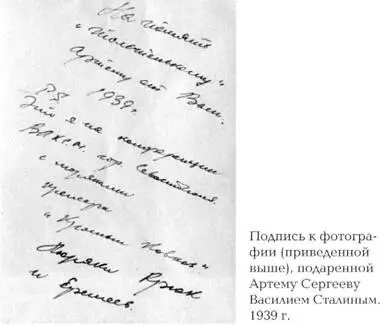 На память
"Толстенькому"
Артему от Васи.
1939г.
P.S.
Это я на конференции
ВЛКСМ. гор. Севастополя.
с моряками
крейсера
"Красный Кавказ"
Моряки
и
Подпись к фотогра-
фии (приведенной
выше), подаренной
Артему Сергееву
Василием Сталиным.
1939 г.